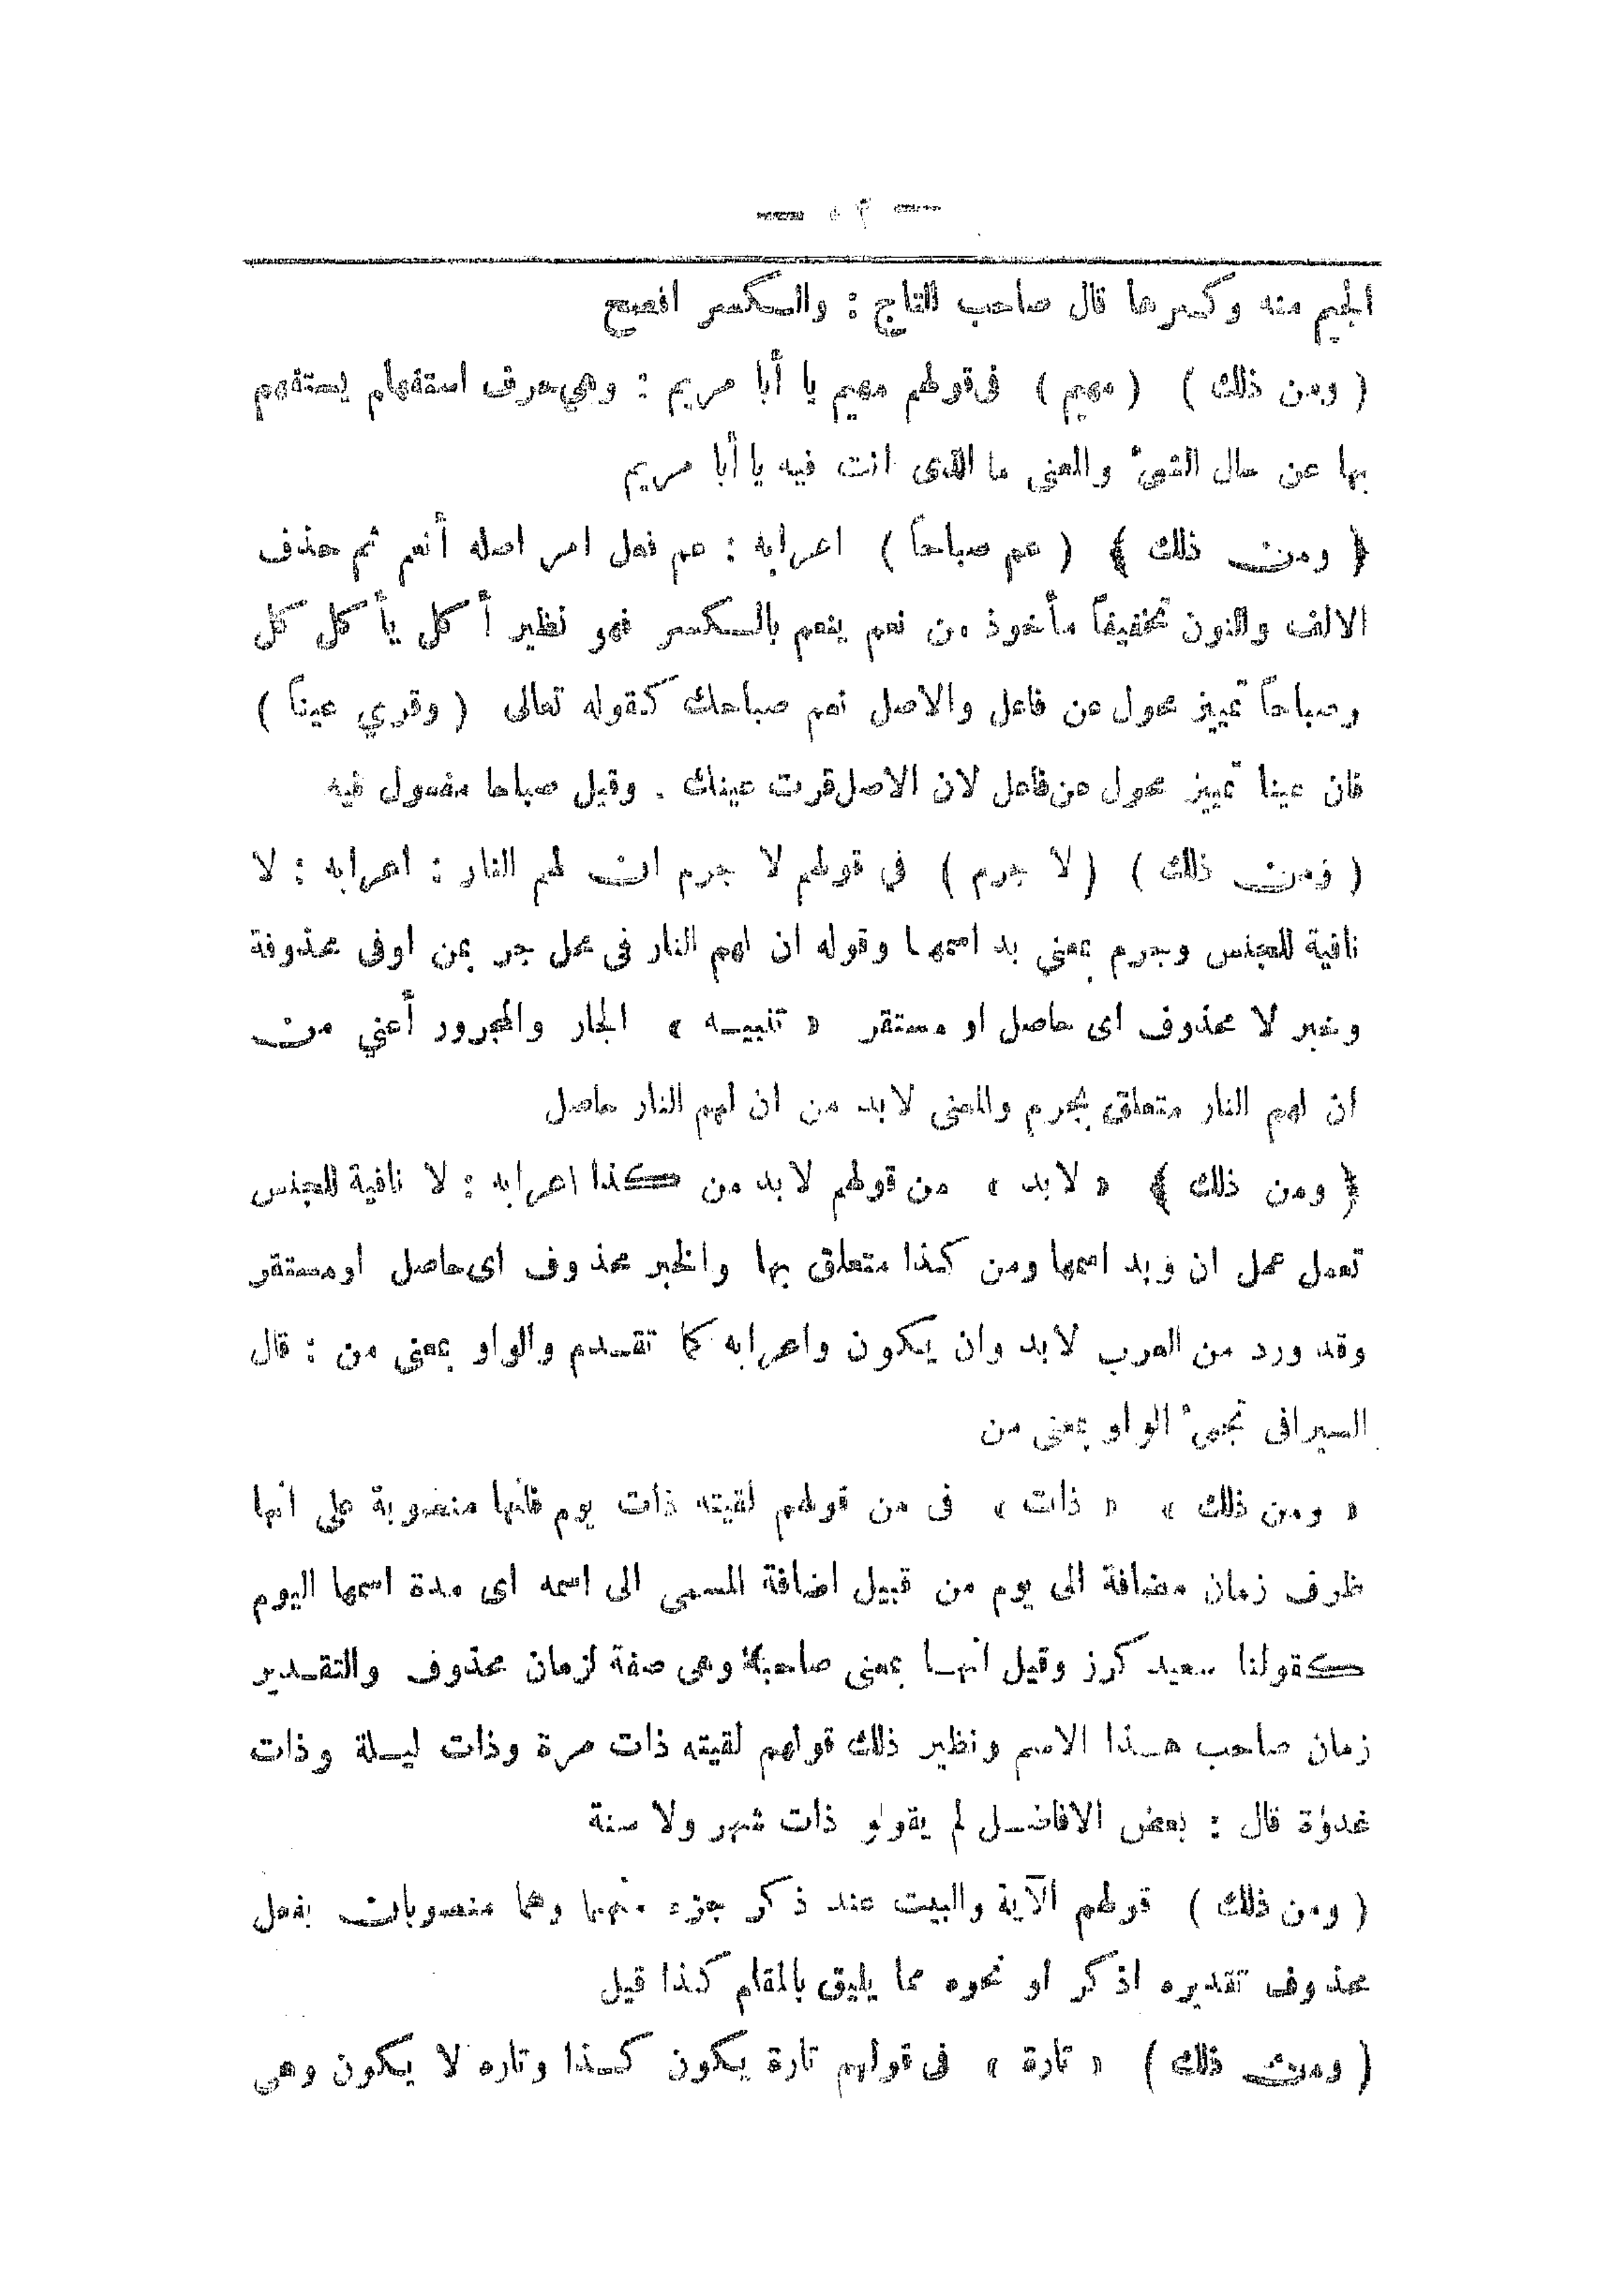 الجيم منه وكسرها قال صاحب التاج : والكسر افصح
( ومن ذلك ) ( مهيم ) فى قولهم مهيم يا أبا مريم : وهي حرف استفهام يستفهم
بها عن حال الشئ والمعنى ما الذى انت فيه يا أبا مريم
﴿ ومن ذلك ﴾ ( عم صباحاً ) اعرابه : عم فعل امر اصله أنعم ثم حذف
الالف والنون تخفيفاً مأخوذ من نعم ينعم بالكسر فهو نظير أكل يأكل كل
وصباحاً تمييز محول عن فاعل والاصل نعم صباحك كقوله تعالى ( وقري عيناً )
فان عينا تمييز محول عن فاعل لان الاصل قرت عينك . وقيل صباحا مفعول فيه
( ومن ذلك ) ( لا جرم ) في قولهم لا جرم ان لهم النار : اعرابه : لا
نافية للجنس وجرم بمعني بد اسمها وقوله ان لهم النار فى محل جر بمن اوفى محذوفة
وخبر لا محذوف اى حاصل او مستقر « تنبيه » الجار والمجرور أعني من
ان لهم النار متعلق بجرم والمعنى لابد من ان لهم النار حاصل
﴿ ومن ذلك ﴾ « لابد » من قولهم لابد من كذا اعرابه : لا نافية للجنس
تعمل عمل ان وبد اسمها ومن كذا متعلق بها والخبر محذوف اى حاصل اومستقر
وقد ورد من العرب لابد وان يكون واعرابه كما تقدم والواو بمعنى من : قال
السيرافى تجئ الواو بمعنى من
« ومن ذلك » « ذات » فى من قولهم لقيته ذات يوم فانها منصوبة على انها
ظرف زمان مضافة الى يوم من قبيل اضافة المسمى الى اسمه اى مدة اسمها اليوم
كقولنا سعيد كرز وقيل انها بمعنى صاحبة وهى صفة لزمان محذوف والتقدير
زمان صاحب هذا الاسم ونظير ذلك قولهم لقيته ذات مرة وذات ليلة وذات
غدؤة قال : بعض الافاضل لم يقولو ذات شهر ولا سنة
( ومن ذلك ) قولهم الآية والبيت عند ذكر جزء منهما وهما منصوبان بفعل
محذوف تقديره اذكر او نحوه مما يليق بالمقام كذا قيل
( ومن ذلك ) « تارة » فى قولهم تارة يكون كذا وتاره لا يكون وهى